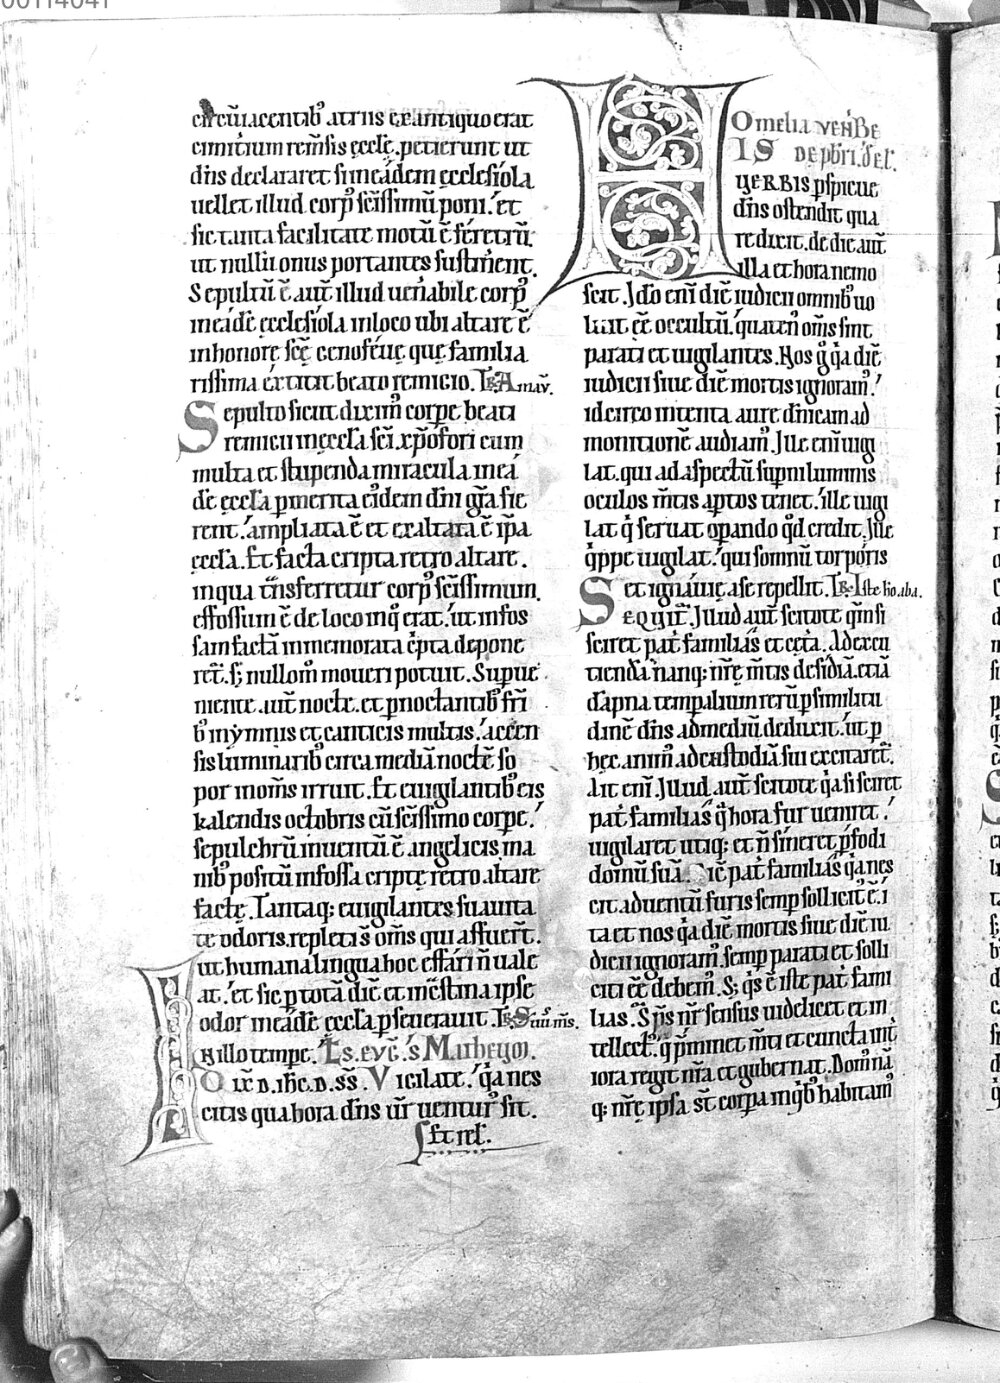 00114041
circũiacentib' atriis ex antiquo erat
cimitirium rem̃sis eccłę. petierunt ut
dñs declararet si in eadem ecclesiola
uellet illud corp' sc̃issimũ poni. et
sic tanta facilitate motũ ẽ feretrũ.
ut nullũ onus portantes sustiñent.
Sepultũ ẽ aut̃ illud uen̾abile corp'
in eadẽ ęcclesiola in loco ubi altare ẽ
in honorę scę̃ genofeuę. quę familia
rissima extitit beato remigio. R̃ Amau̾.
Sepulto sicut dixim' corpe beati
remigii in ęcc̃la sc̃i xp̃ofori cum
multa et stupenda miracula in ea
dẽ ęcc̃la p merita eidem dñi gr̃a fie
rent. ampliata ẽ et exaltata ẽ ip̃a
ęcc̃la. Et facta cripta retro altare.
in qua tr̃nsferretur corp' sc̃issimum.
effossum ẽ de loco in q̊ erat. ut in fos
sam factã in memorata cr̾pta depone
ret̃. s; nullom̊ moueri potuit. Superue
niente aut̃ nocte. et pnoctantib' fr̃i
b' in ẏmnis et canticis multis. accen
sis luminarib' circa mediã noctẽ so
por in om̃s irruit. Et euigilantib' eis
kalendis octobris cũ sc̃issimo corpe.
sepulchrũ inuentũ ẽ angelicis ma
nib' positũ in fossa criptę retro altare
factę. Tantaq; euigilantes suauita
te odoris. repleti s̃ om̃s qui affuer̃t.
ut humana lingua hoc effari ñ uale
at. et sic p totã diẽ et in c̃stina ipse
odor in eadẽ ęcc̃la pseuerauit. R̃ Sint lũ.
In illo tempe. Ł s. eug̃. s̃ Matheum.
Dix̃. d. ih̃c. d. ss̃. Vigilate. q̇a nes
citis qua hora dñs ur̃ uentur' sit.
Et rel̃.
Omelia ven̾. Be
IS de pbr̃i. de l.
VERBIS pspicue
dñs ostendit qua
re dixit. de die aut̃
illa et hora nemo
scit. Ido eni diẽ iudicii omnib' uo
luit eẽ occultũ. quaten' om̃s sint
parati et uigilantes. Nos g̊ q̇a diẽ
iudicii siue diẽ mortis ignoram'.
idcirco intenta aure dñicam ad
monitionẽ audiam'. Ille eni uigi
lat. qui ad aspectũ supni luminis
oculos m̃tis aptos tenet. ille uigi
lat q̇ seruat opando q̊d credit. Ille
q̇ppe uigilat. qui somnũ torporis
et ignauię a se repellit. R̃ Iste h̊o ab a.
SEQVIT̃. Illud aut̃ scitote qm̃ si
sciret pat̾ familias et cet̃a. Ad excu
tiendã nanq; nr̃ę m̃tis desidiã. etiã
dãpna tempalium rerũ p similitu
dinẽ dñs ad mediũ deducit. ut p
hęc. anim' ad custodiã sui excitaret̃.
Ait eni. Illud aut̃ scitote q̇a si sciret
pat̾ familias q̇ hora fur ueniret.
uigilaret utiq; et ñ sineret pfodi
domũ suã. Sic̃ pat̾ familias q̇a nes
cit aduentũ furis semp sollicit' ẽ. i
ta et nos q̇a diẽ mortis siue diẽ iu
dicii ignoram'. semp parati et solli
citi eẽ debem'. S; q̇s ẽ iste pat̾ fami
lias. Sp̃s nr̃ sensus uidelicet et in
tellect'. q̇ pminet m̃ti et cuncta int̾
iora regit nr̃a et gubernat. Dom' nã
q; nr̃ę ipsa st̃ corpa in q̇b' habitam'